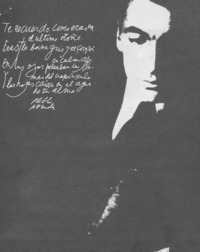 Te recuerdo como eras en
el último otoño.
Eras la boina gris y el corazón
en calma.
En tus ojos peleaban las lla-
mas del crepúsculo
Y las hojas caían en el agua
de tu alma